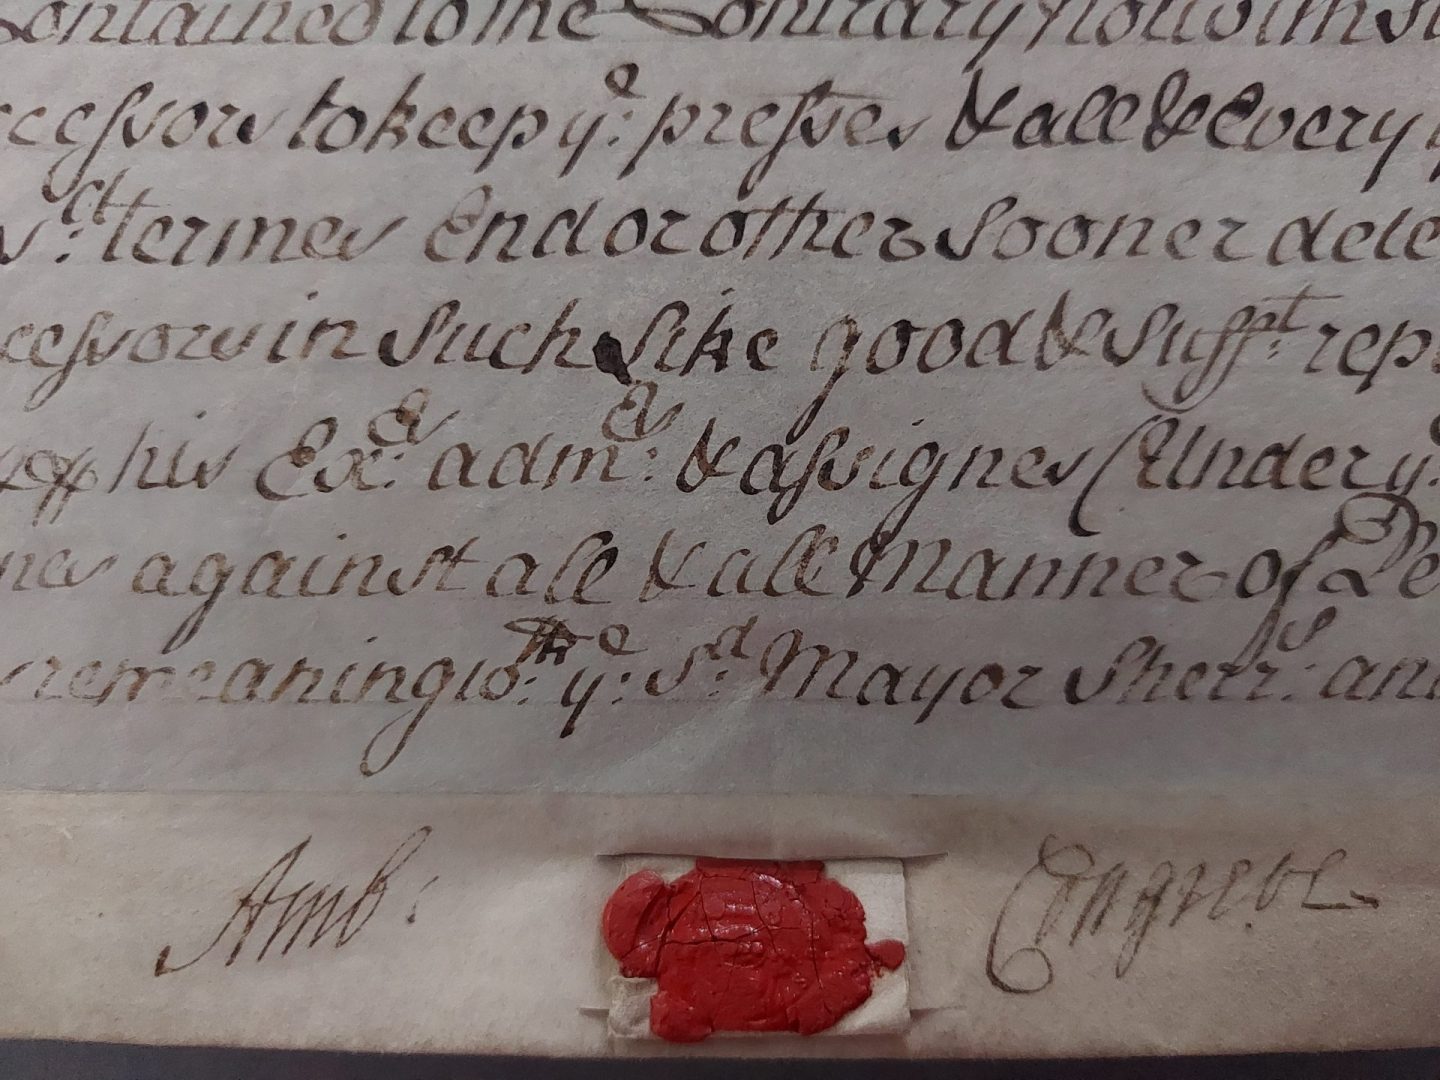 Contained to the Contrary notwithst
ccessors to keep ye: presses & all & Every
s:d termes End or other Sooner dete
cessors in Such like good & Suff:t rep
his Exe:rs adm:rs & assignes (Under y:
nes against all & all Manner of Pe
ye: s:d Mayor Sherr:s and
Amb: Congreve